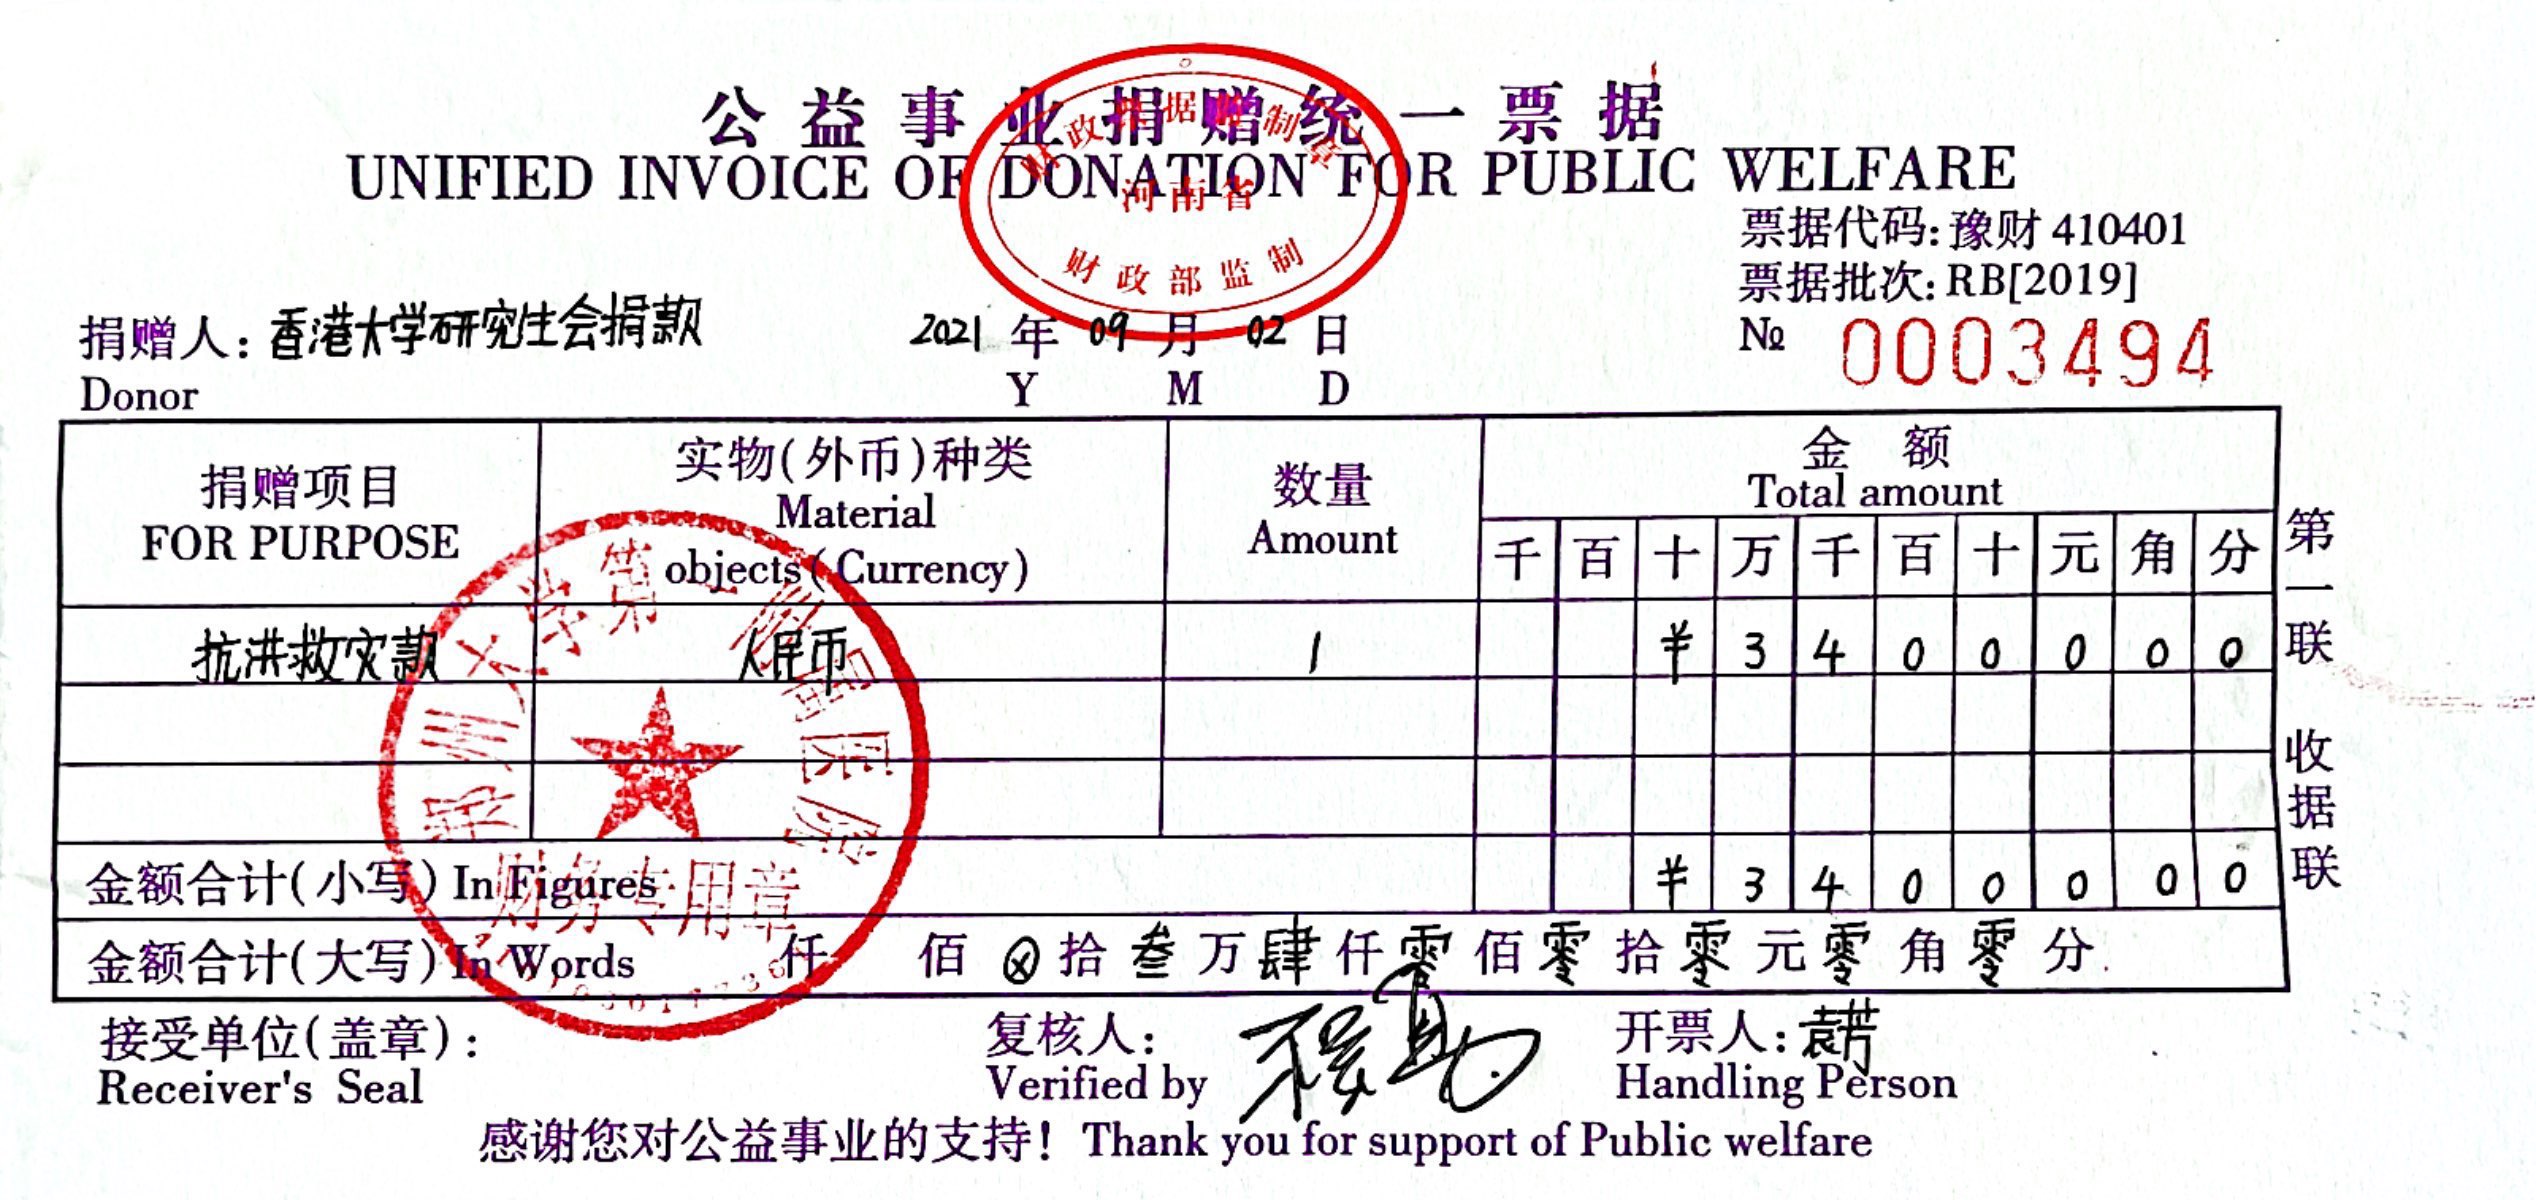 公益事业捐赠统一票据
UNIFIED INVOICE OF DONATION FOR PUBLIC WELFARE
财政票据监制章
河南省
财政部监制
票据代码:豫财 410401
票据批次:RB[2019]
№ 0003494
捐赠人:香港大学研究生会捐款 2021 年 09 月 02 日
Donor Y M D
捐赠项目 实物(外币)种类 数量 金 额
FOR PURPOSE Material objects(Currency) Amount Total amount
千 百 十 万 千 百 十 元 角 分
抗洪救灾款 人民币 1 ¥ 3 4 0 0 0 0 0
金额合计(小写) In Figures ¥ 3 4 0 0 0 0 0
金额合计(大写) In Words 仟 佰 ⊗ 拾 叁 万 肆 仟 零 佰 零 拾 零 元 零 角 零 分
郑州大学第一附属医院
财务专用章
第一联 收据联
接受单位(盖章): 复核人: 开票人:袁芳
Receiver's Seal Verified by Handling Person
感谢您对公益事业的支持! Thank you for support of Public welfare